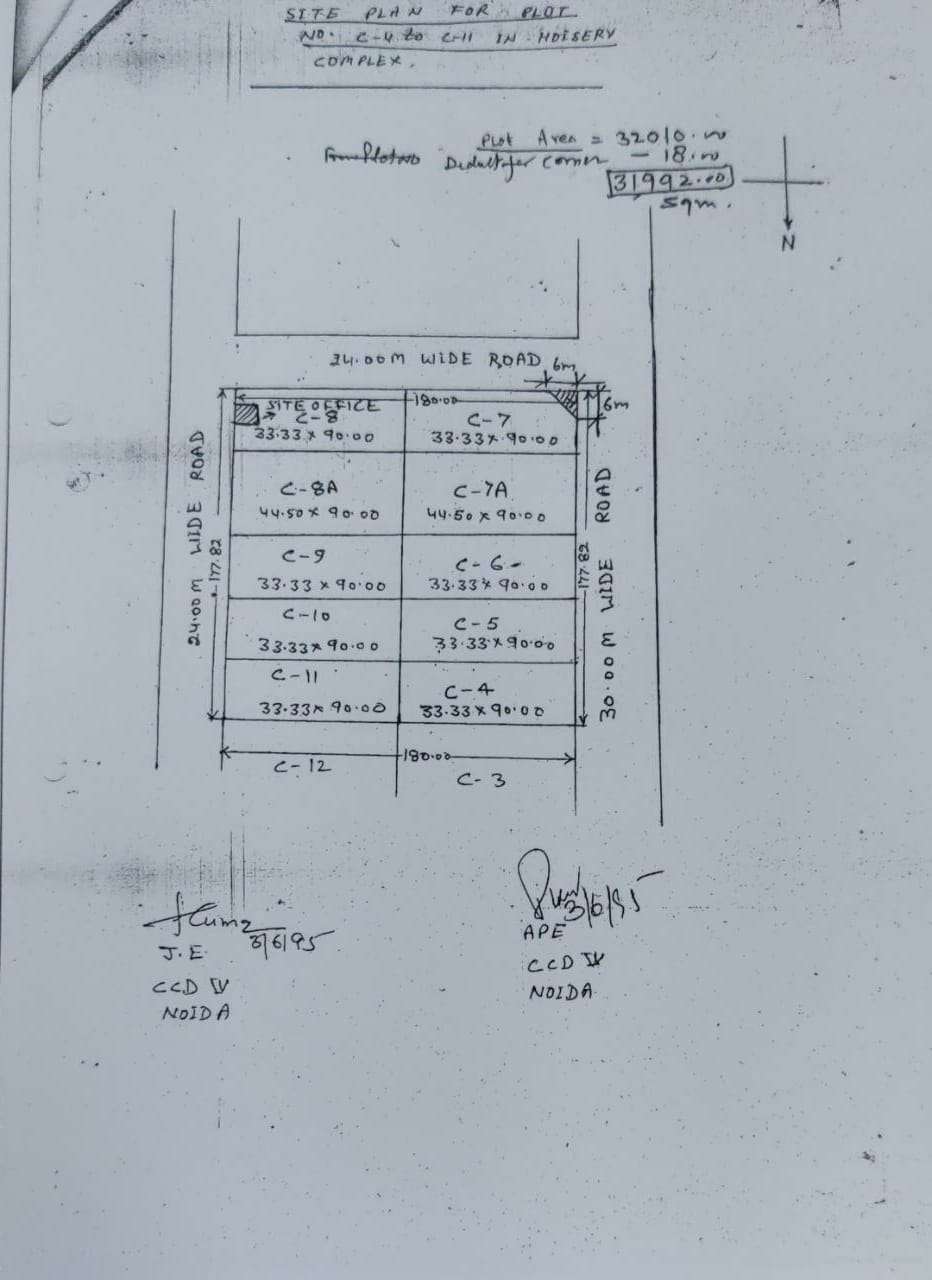 SITE PLAN FOR PLOT
NO. C-4 to C-11 IN HOISERY
COMPLEX.
Plot Area = 32010.00
Deduct for corner - 18.00
31992.00
sqm.
N
24.00M WIDE ROAD
6m
6m
180.00
SITE OFFICE
C-8
33.33 x 90.00
C-7
33.33 x 90.00
C-8A
44.50 x 90.00
C-7A
44.50 x 90.00
C-9
33.33 x 90.00
C-6
33.33 x 90.00
C-10
33.33 x 90.00
C-5
33.33 x 90.00
C-11
33.33 x 90.00
C-4
33.33 x 90.00
24.00M WIDE ROAD
177.82
177.82
30.00M WIDE ROAD
180.00
C-12
C-3
3/6/95
J.E.
CCD IV
NOIDA
3/6/95
APE
CCD IV
NOIDA